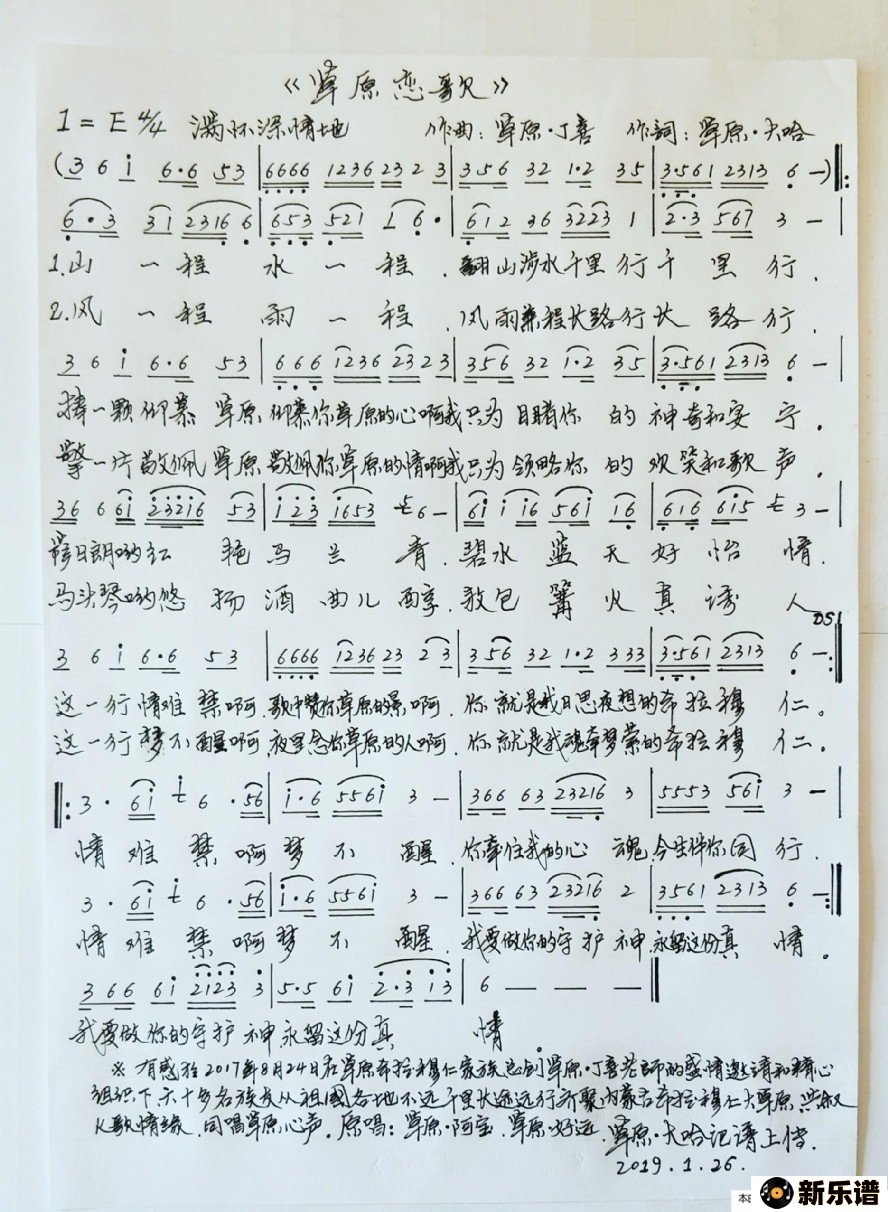 《草原恋歌》
1=E 4/4 满怀深情地 作曲:草原·丁喜 作詞:草原·大哈
(3 6 i 6·6 53|6666 1236 23 2 3|356 32 1·2 35|3·561 2313 6 -)‖:
6·3 31 2316 6|653 521 1 6·|612 36 3223 1|2·3 567 3 -|
1.山一程水一程.翻山涉水千里行千里行.
2.风一程雨一程.风雨兼程长路行长路行.
3 6 i 6·6 53|666 1236 23 23|356 32 1·2 35|3·561 2313 6 -|
捧一颗仰慕草原仰慕你草原的心啊我只为目睹你的神奇和安宁.
擎一片敬佩草原敬佩你草原的情啊我只为领略你的欢笑和歌声.
36 6 6i 23216 53|i23 1653 6 -|6i i i6 56i i6|616 6i5 3 -|
日朗哟红艳马兰青.碧水蓝天好怡情.
马头琴哟悠扬酒曲儿醇.敖包篝火真诱人
DS1
3 6 i 6·6 53|6666 1236 23 23|356 32 1·2 333|3·561 2313 6 -:‖
这一行情难禁啊.歌中赞你草原的景啊.你就是我日思夜想的奔拉穆仁。
这一行梦不醒啊夜里念你草原的人啊.你就是我魂牵梦萦的奔拉穆仁.
‖:3· 6i i 6·56|i·6 556i 3 -|366 63 23216 3|5553 56i 3 -|
情难禁啊梦不醒.你牵住我的心魂今生伴你同行.
3· 6i i 6·56|i·6 556i 3 -|366 63 23216 2|3561 2313 6 -:‖
情难禁啊梦不醒.我要做你的守护神永留这份真情.
366 6i 2123 3|5·5 6i 2·3 i3|6 — — —‖
我要做你的守护神永留这份真情.
※有感於2017年8月24日在草原奔拉穆仁家族总创草原·丁喜老師的盛情邀請和精心
組织下六十多名族友从祖國各地不远千里长途远行齐聚内蒙古奔拉穆仁大草原.共叙
K歌情缘.同唱草原心声.原唱:草原·阿宝.草原·好远.草原·大哈记谱上传.
2019.1.26.
新乐谱